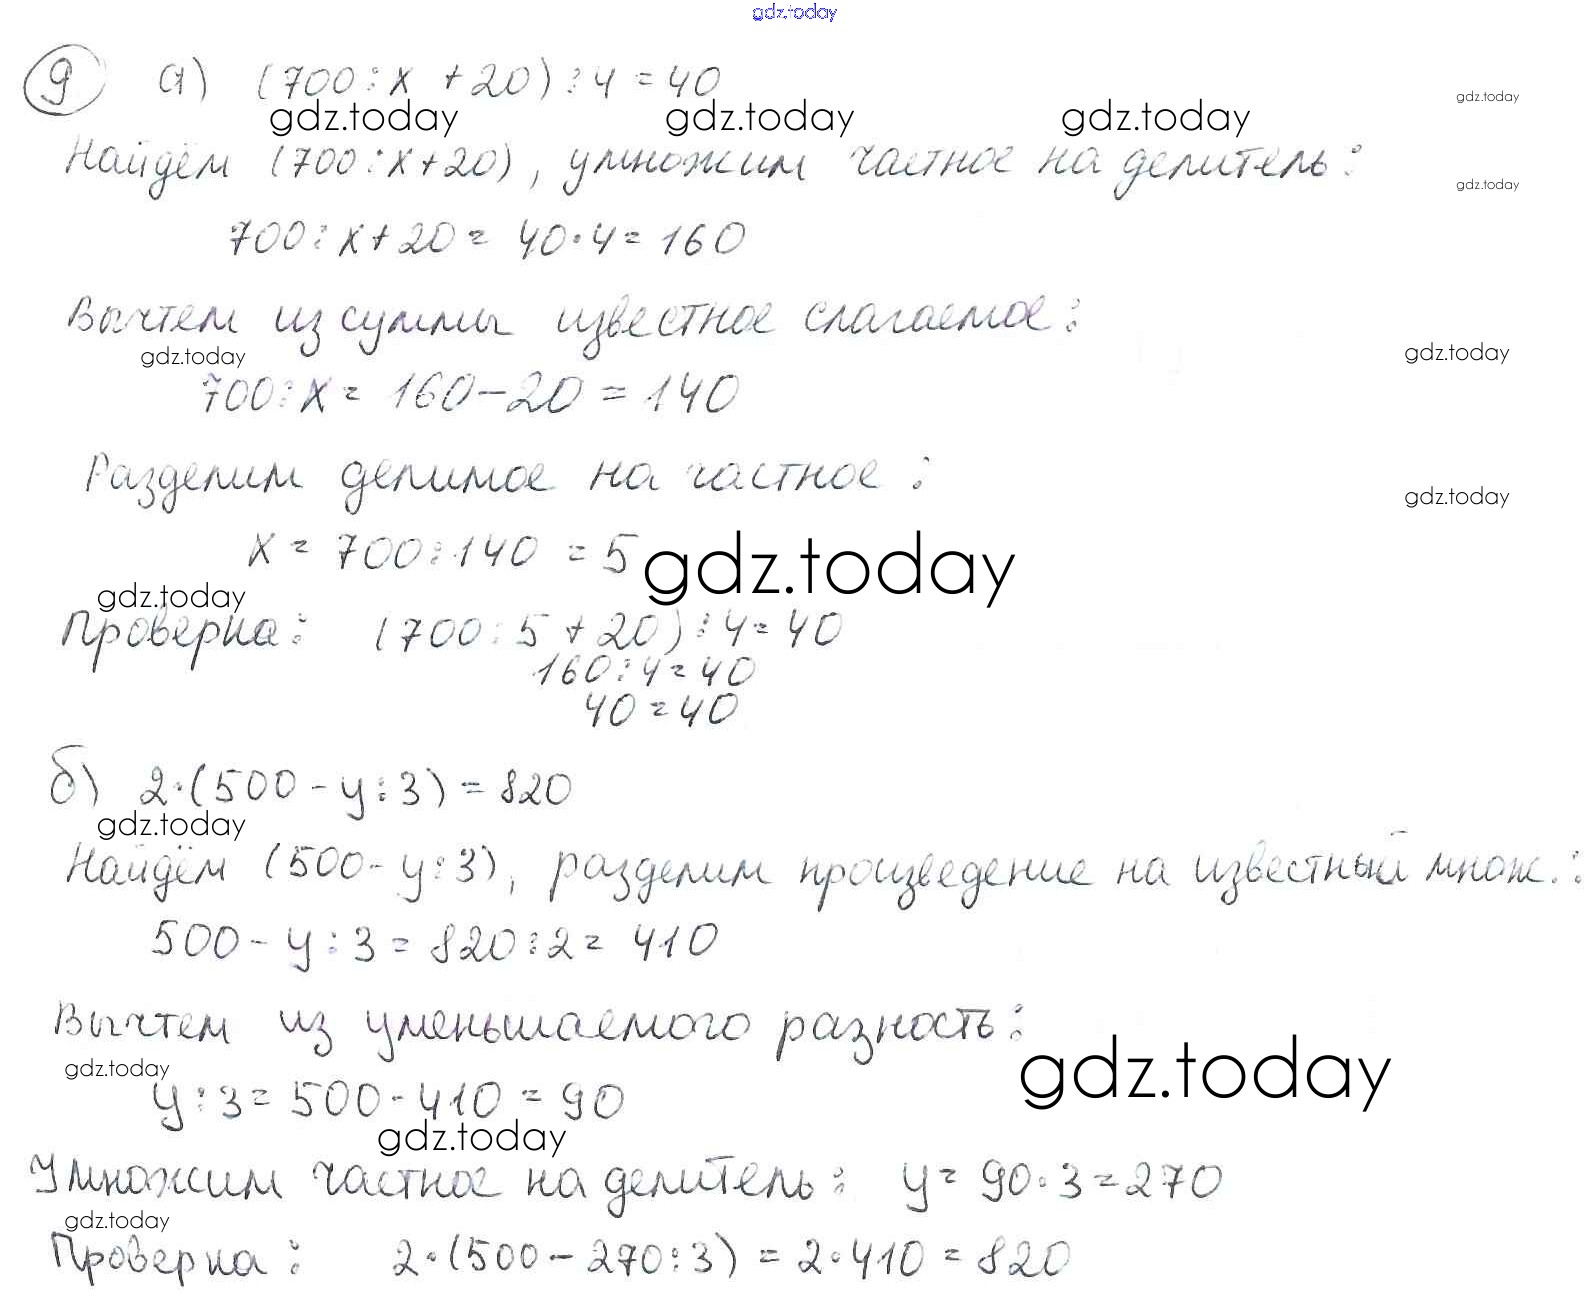 gdz.today
9 а) (700:x +20):4=40
gdz.today gdz.today gdz.today gdz.today
Найдём (700:x+20), умножим частное на делитель:
gdz.today
700:x+20= 40·4=160
Вычтем из суммы известное слагаемое:
gdz.today gdz.today
700:x= 160-20=140
Разделим делимое на частное:
gdz.today
x= 700:140=5
gdz.today
gdz.today
Проверка: (700:5+20):4=40
160:4=40
40=40
б) 2·(500-y:3)=820
gdz.today
Найдём (500-y:3), разделим произведение на известный множ.:
500-y:3=820:2=410
Вычтем из уменьшаемого разность:
gdz.today gdz.today
y:3=500-410=90
gdz.today
Умножим частное на делитель: y=90·3=270
gdz.today
Проверка: 2·(500-270:3)=2·410=820